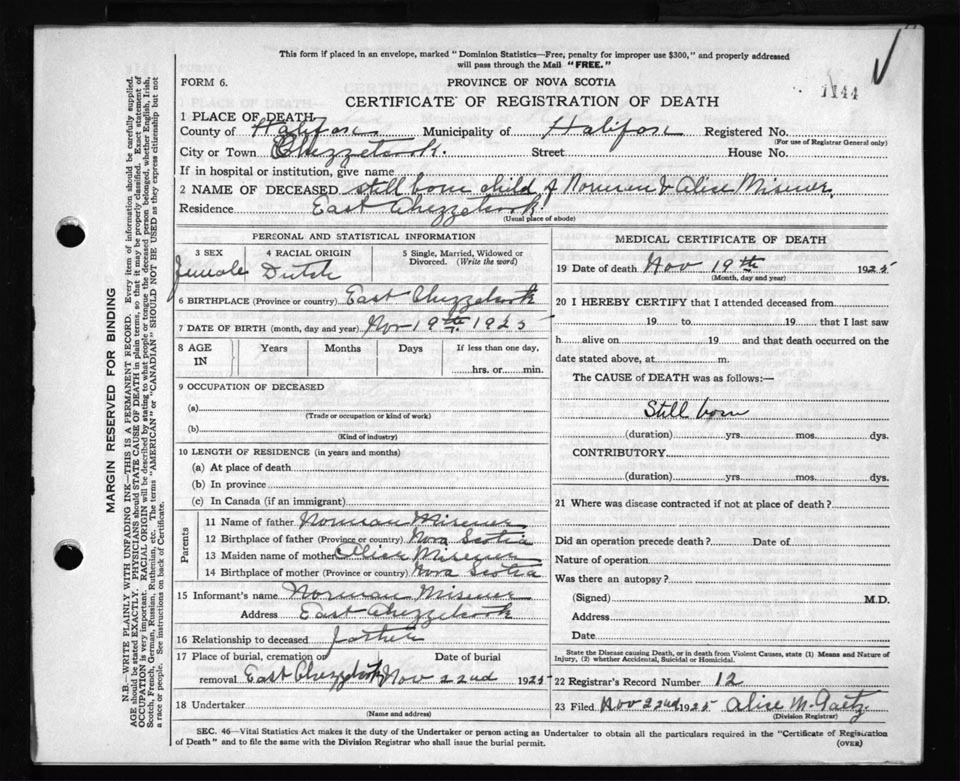 This form if placed in an envelope, marked "Dominion Statistics—Free, penalty for improper use $300," and properly addressed
will pass through the Mail "FREE."
FORM 6.
PROVINCE OF NOVA SCOTIA
1144
CERTIFICATE OF REGISTRATION OF DEATH
1 PLACE OF DEATH
County of Halifax Municipality of Halifax Registered No.
(For use of Registrar General only)
City or Town Chezzetcook. Street House No.
If in hospital or institution, give name
2 NAME OF DECEASED still born child of Norman & Alice Misener,
Residence East Chezzetcook.
(Usual place of abode)
PERSONAL AND STATISTICAL INFORMATION
3 SEX 4 RACIAL ORIGIN 5 Single, Married, Widowed or
Divorced. (Write the word)
Female Dutch
6 BIRTHPLACE (Province or country) East Chezzetcook
7 DATE OF BIRTH (month, day and year) Nov 19th. 1925
8 AGE IN Years Months Days If less than one day,
hrs. or min.
9 OCCUPATION OF DECEASED
(a)
(Trade or occupation or kind of work)
(b)
(Kind of industry)
10 LENGTH OF RESIDENCE (in years and months)
(a) At place of death
(b) In province
(c) In Canada (if an immigrant)
Parents
11 Name of father Norman Misener
12 Birthplace of father (Province or country) Nova Scotia
13 Maiden name of mother Alice Misener
14 Birthplace of mother (Province or country) Nova Scotia
15 Informant's name Norman Misener
Address East Chezzetcook
16 Relationship to deceased Father
17 Place of burial, cremation or Date of burial
removal East Chezzetcook Nov 22nd 1925
18 Undertaker
(Name and address)
MEDICAL CERTIFICATE OF DEATH
19 Date of death Nov 19th 1925
(Month, day and year)
20 I HEREBY CERTIFY that I attended deceased from
19 to 19 that I last saw
h alive on 19 and that death occurred on the
date stated above, at m.
The CAUSE of DEATH was as follows:—
Still born
(duration) yrs. mos. dys.
CONTRIBUTORY
(duration) yrs. mos. dys.
21 Where was disease contracted if not at place of death?
Did an operation precede death? Date of
Nature of operation
Was there an autopsy?
(Signed) M.D.
Address
Date
State the Disease causing Death, or in death from Violent Causes, state (1) Means and Nature of
Injury, (2) whether Accidental, Suicidal or Homicidal.
22 Registrar's Record Number 12
23 Filed Nov 22nd 1925 Alice M. Gaetz
(Division Registrar)
SEC. 46—Vital Statistics Act makes it the duty of the Undertaker or person acting as Undertaker to obtain all the particulars required in the "Certificate of Registration
of Death" and to file the same with the Division Registrar who shall issue the burial permit.
(OVER)
MARGIN RESERVED FOR BINDING
N.B.—WRITE PLAINLY WITH UNFADING INK—THIS IS A PERMANENT RECORD. Every item of information should be carefully supplied.
AGE should be stated EXACTLY. PHYSICIANS should STATE CAUSE OF DEATH in plain terms, so that it may be properly classified. Exact statement of
OCCUPATION is very important. RACIAL ORIGIN will be described by stating to what people or tongue the deceased person belonged, whether English, Irish,
Scotch, French, German, Russian, Ruthenian, etc. The terms "AMERICAN" or "CANADIAN" SHOULD NOT BE USED as they express citizenship but not
a race or people. See instructions on back of Certificate.